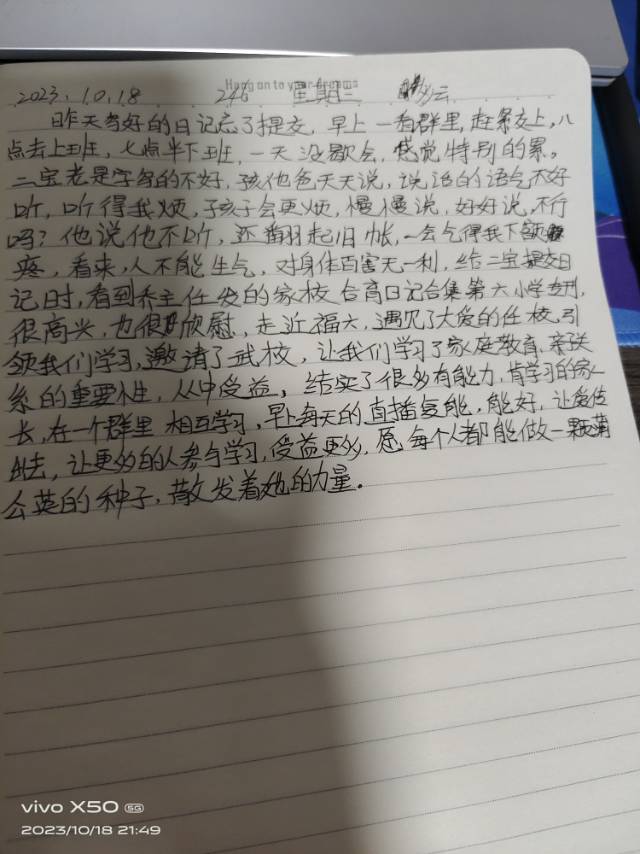 Hang on to your dreams
2023.10.18 246 星期三 晴多云
昨天写好的日记忘了提交,早上一看群里,赶紧交上,八
点去上班,七点半下班,一天没歇会,感觉特别的累。
二宝老是字写的不好,孩他爸天天说,说话的语气不好
听,听得我烦,孩子会更烦,慢慢说,好好说,不行
吗?他说他不听,还翻起旧帐,一会气得我下额
疼,看来,人不能生气,对身体百害无一利,给二宝提交日
记时,看到乔主任发的家校合育日记合集第六小学专刊,
很高兴,也很欣慰,走近福六,遇见了大爱的任校,引
领我们学习,邀请了武校,让我们学习了家庭教育,亲子关
系的重要性,从中受益,结实了很多有能力,肯学习的家
长,在一个群里相互学习,早上每天的直播复能,能好,让爱传
出去,让更多的人参与学习,受益更多,愿每个人都能做一颗蒲
公英的种子,散发着她的力量。
vivo X50 5G
2023/10/18 21:49